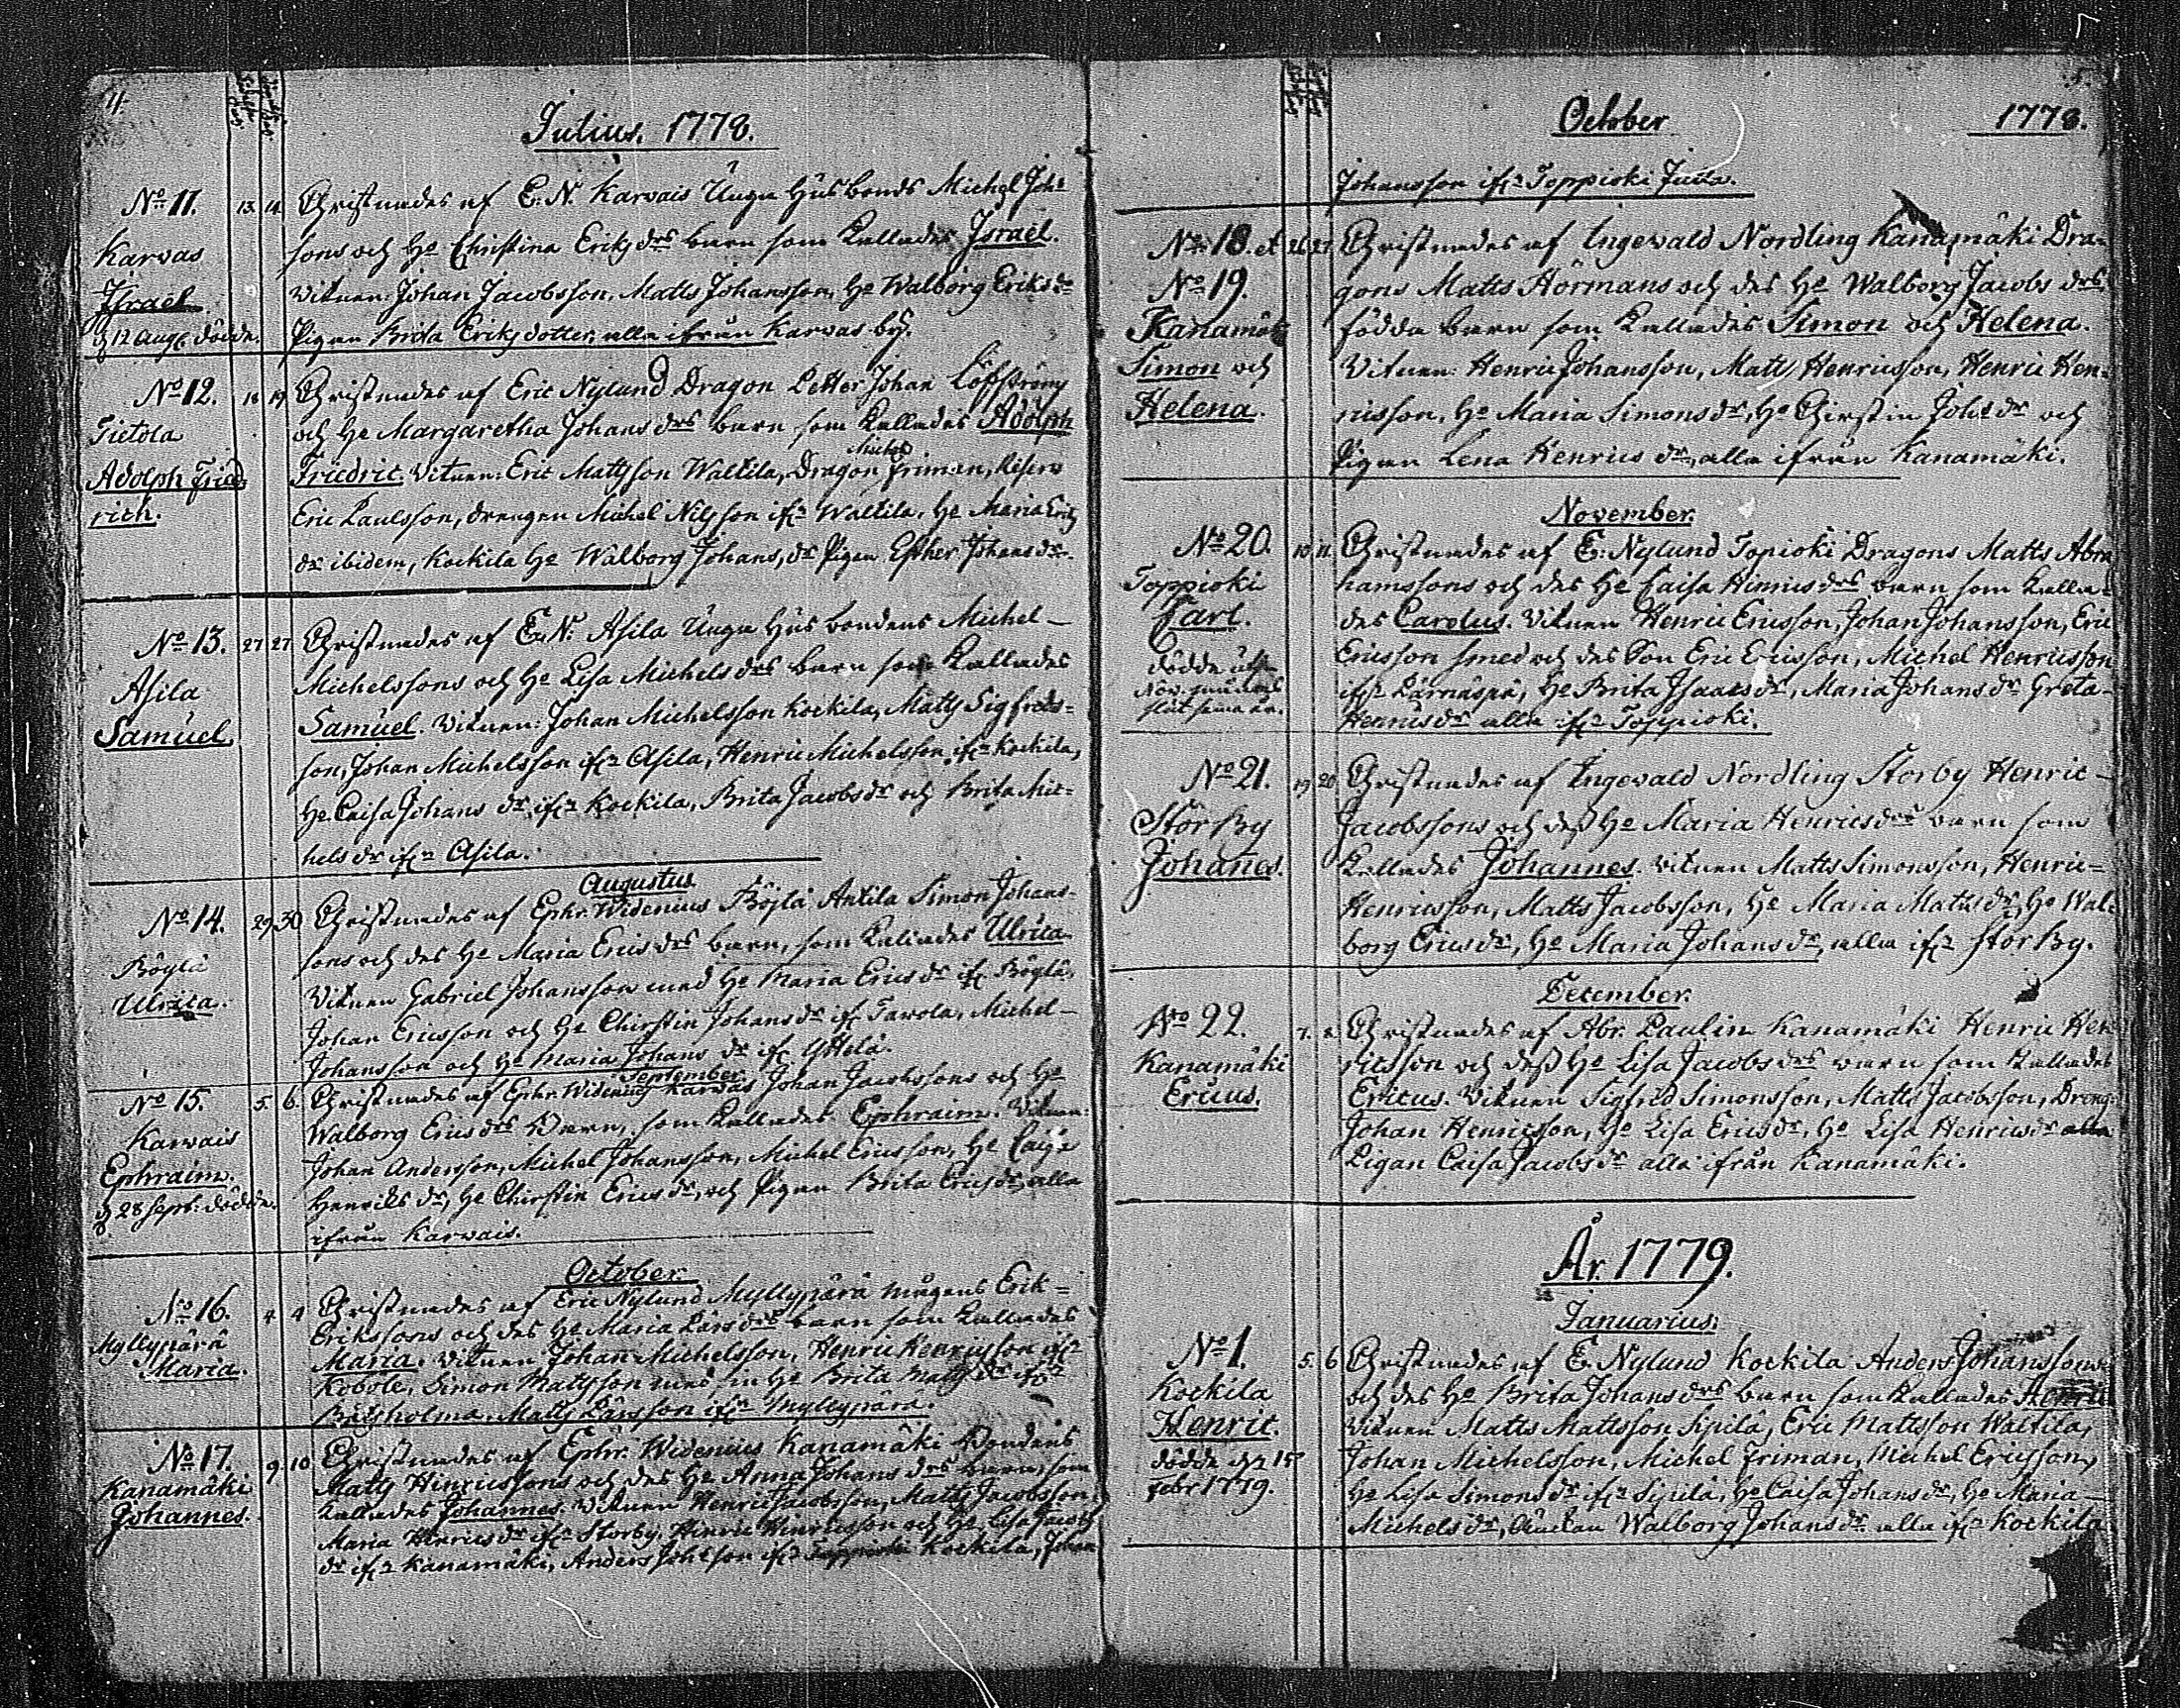 4.
Julius. 1778.
No 11. 13 14 Christnades af E. N. Karvais Unga Husbonds Michel Joh:
Karvas sons och Ho Christina Eriks drs barn som kallades Israel.
Israel Vitnen: Johan Jacobsson, Matts Johansson, Ho Walborg Eriks dr
12 Aug. dödde. Pigan Brita Eriks dotter, alla ifrån Karvas by.
No 12. 18 19 Christnades af Eric Nylund Dragon Petter Johan Löfströms
Tietola och Ho Margaretha Johans drs barn som kallades Adolph
Michel
Adolph Fried Friedric. Vitnen: Eric Mattsson Waltila, Dragon Friman, Reserv
rich. Eric Paulsson, drengen Michel Nilsson ifr Waltila, Ho Maria Erics
dr ibidem, Kockila Ho Walborg Johans dr Pigan Esther Johans dr.
No 13. 27 27 Christnades af E. N. Asila Unga Husbondens Michel
Asila Michelssons och Ho Lisa Michels drs barn som kallades
Samuel. Samuel. Vitnen: Johan Michelsson Kockila, Matts Sigfreds=
son, Johan Michelsson ifr Asila, Henric Michelsson ifr Kockila,
Ho Caisa Johans dr ifr Kockila, Brita Jacobs dr och Brita Mic=
hels dr ifr Asila.
Augustus
No 14. 29 30 Christnades af Ephr. Widenius Böjlä Antila Simon Johans-
Böylä sons och des Ho Maria Erics drs barn, som kallades Ulrica
Ulrica. Vitnen Gabriel Johansson med Ho Maria Erics dr ifr Böylä,
Johan Ericsson och Ho Chirstin Johans dr ifr Tavola, Michel
Johansson och Ho Maria Johans dr ifr Yttelä.
September
No 15. 5. 6. Christnades af Ephr. Widenius Karvas Johan Jacobssons och Ho
Karvais Walborg Erics drs Barn, som kallades Ephraim. Vitnen:
Ephraim. Johan Andersson, Michel Johansson, Michel Ericsson, Ho Caisa
28 Sept: dödde. Henrics dr, Ho Chirstin Erics dr, och Pigan Brita Erics dr alla
ifrån Karvais.
October.
No 16. 4. 4 Christnades af Eric Nylund Myllypärä mågens Erik=
Myllypärä Erikssons och des Ho Maria Lars drs barn som kallades
Maria. Maria. Vitnen Johan Michelsson, Henric Henricsson ifr
Kobole, Simon Mattsson med sin Ho Brita Matts dr ifr
Brusholma, Matts Larsson ifr Myllypärä.
No 17. 9. 10 Christnades af Ephr. Widenius Kanamäki Bondens
Kanamäki Matts Hinricssons och des Ho Anna Johans drs barn, som
Johannes. kallades Johannes. Vitnen Henric Jacobsson, Matts Jacobsson,
Maria Hinrics dr ifr Storby, Hinric Hinricsson och Ho Lisa Jacobs
dr ifr Kanamäki, Anders Johsson ifr Toppioki Kockila, Johan
5.
October 1778.
Johansson ifr Toppioki Jussa.
No 18. et 26 27 Christnades af Ingevald Nordling Kanamäki Dra=
No 19. gons Matts Hörmans och des Ho Walborg Jacobs drs
Kanamäki födda barn som kallades Simon och Helena.
Simon och Vitnen: Henric Johansson, Matts Henricsson, Henric Hen=
Helena. ricsson, Ho Maria Simons dr, Ho Chirstin Johs dr och
Pigan Lena Henrics dr, alla ifrån Kanamäki.
November.
No 20. 10 11. Christnades af E. Nylund Topioki Dragons Matts Abra
Toppioki hamssons och des Ho Caisa Hinrics drs barn som kalla=
Carl. des Carolus. Vitnen Henric Ericsson, Johan Johansson, Eric
dödde uti Ericsson smed och des Son Eric Ericsson, Michel Henricsson
Nov. månads ifr Pärnäspä, Ho Brita Isaacs dr, Maria Johans dr Greta
slut samma år. Henrics dr alla ifr Toppioki.
No 21. 19 20 Christnades af Ingevald Nordling Storby Henric
Stor By Jacobssons och dess Ho Maria Henrics drs barn som
Johanes. kallades Johannes. Vitnen Matts Simonsson, Henric=
Henricsson, Matts Jacobsson, Ho Maria Matts dr, Ho Wal=
borg Erics dr, Ho Maria Johans dr, alla ifr Stor By.
December.
No 22. 7. 8 Christnades af Abr. Paulin Kanamäki Henric Hen
Kanamäki ricsson och dess Ho Lisa Jacobs drs barn som kallades
Ericus. Ericus. Vitnen Sigfrid Simonsson, Matts Jacobsson, Dreng
Johan Henricsson, Ho Lisa Erics dr, Ho Lisa Henrics dr alla
Pigan Caisa Jacobs dr alla ifrån Kanamäki.
År 1779.
Januarius.
No 1. 5. 6 Christnades af E. Nylund Kockila Anders Johanssons
Kockila och des Ho Brita Johans drs barn som kallades Henric
Henric. Vitnen Matts Mattsson Sipilä, Eric Mattsson Waltila,
dödde den 15 Johan Michelsson, Michel Friman, Michel Ericsson,
Febr 1779. Ho Lisa Simons dr ifr Sipilä, Ho Caisa Johans dr, Ho Maria
Michels dr, Walborg Johans dr alla ifr Kockila